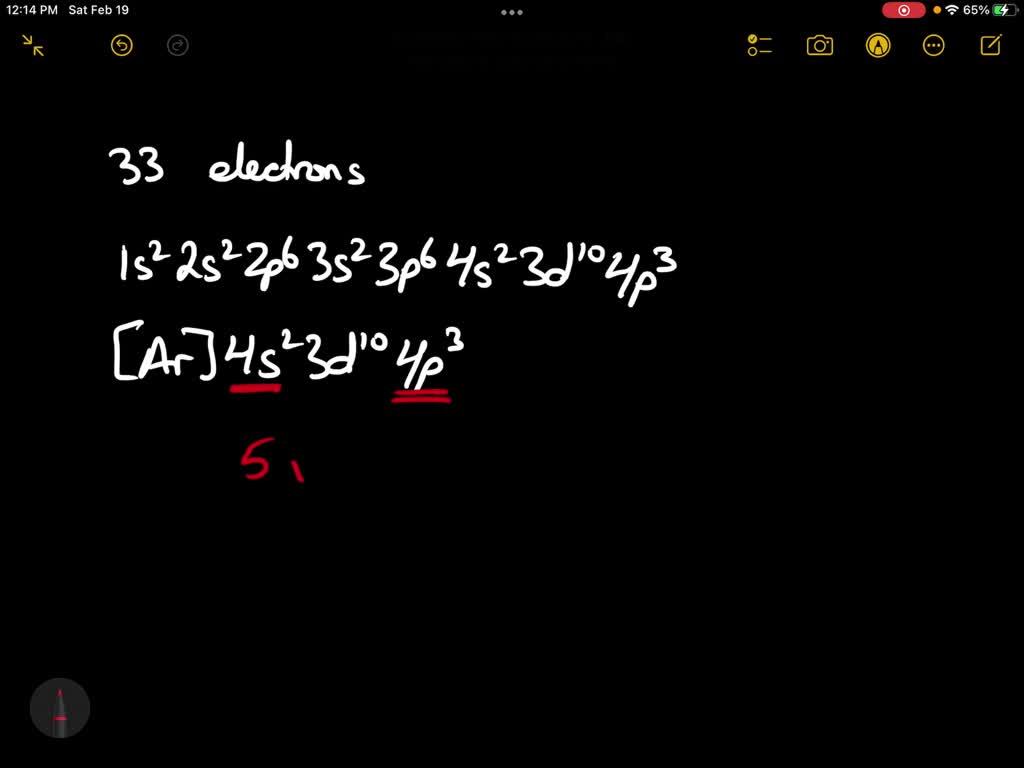 12:14 PM Sat Feb 19
65%
33 electrons
1s² 2s² 2p⁶ 3s² 3p⁶ 4s² 3d¹⁰ 4p³
[Ar] 4s² 3d¹⁰ 4p³
5